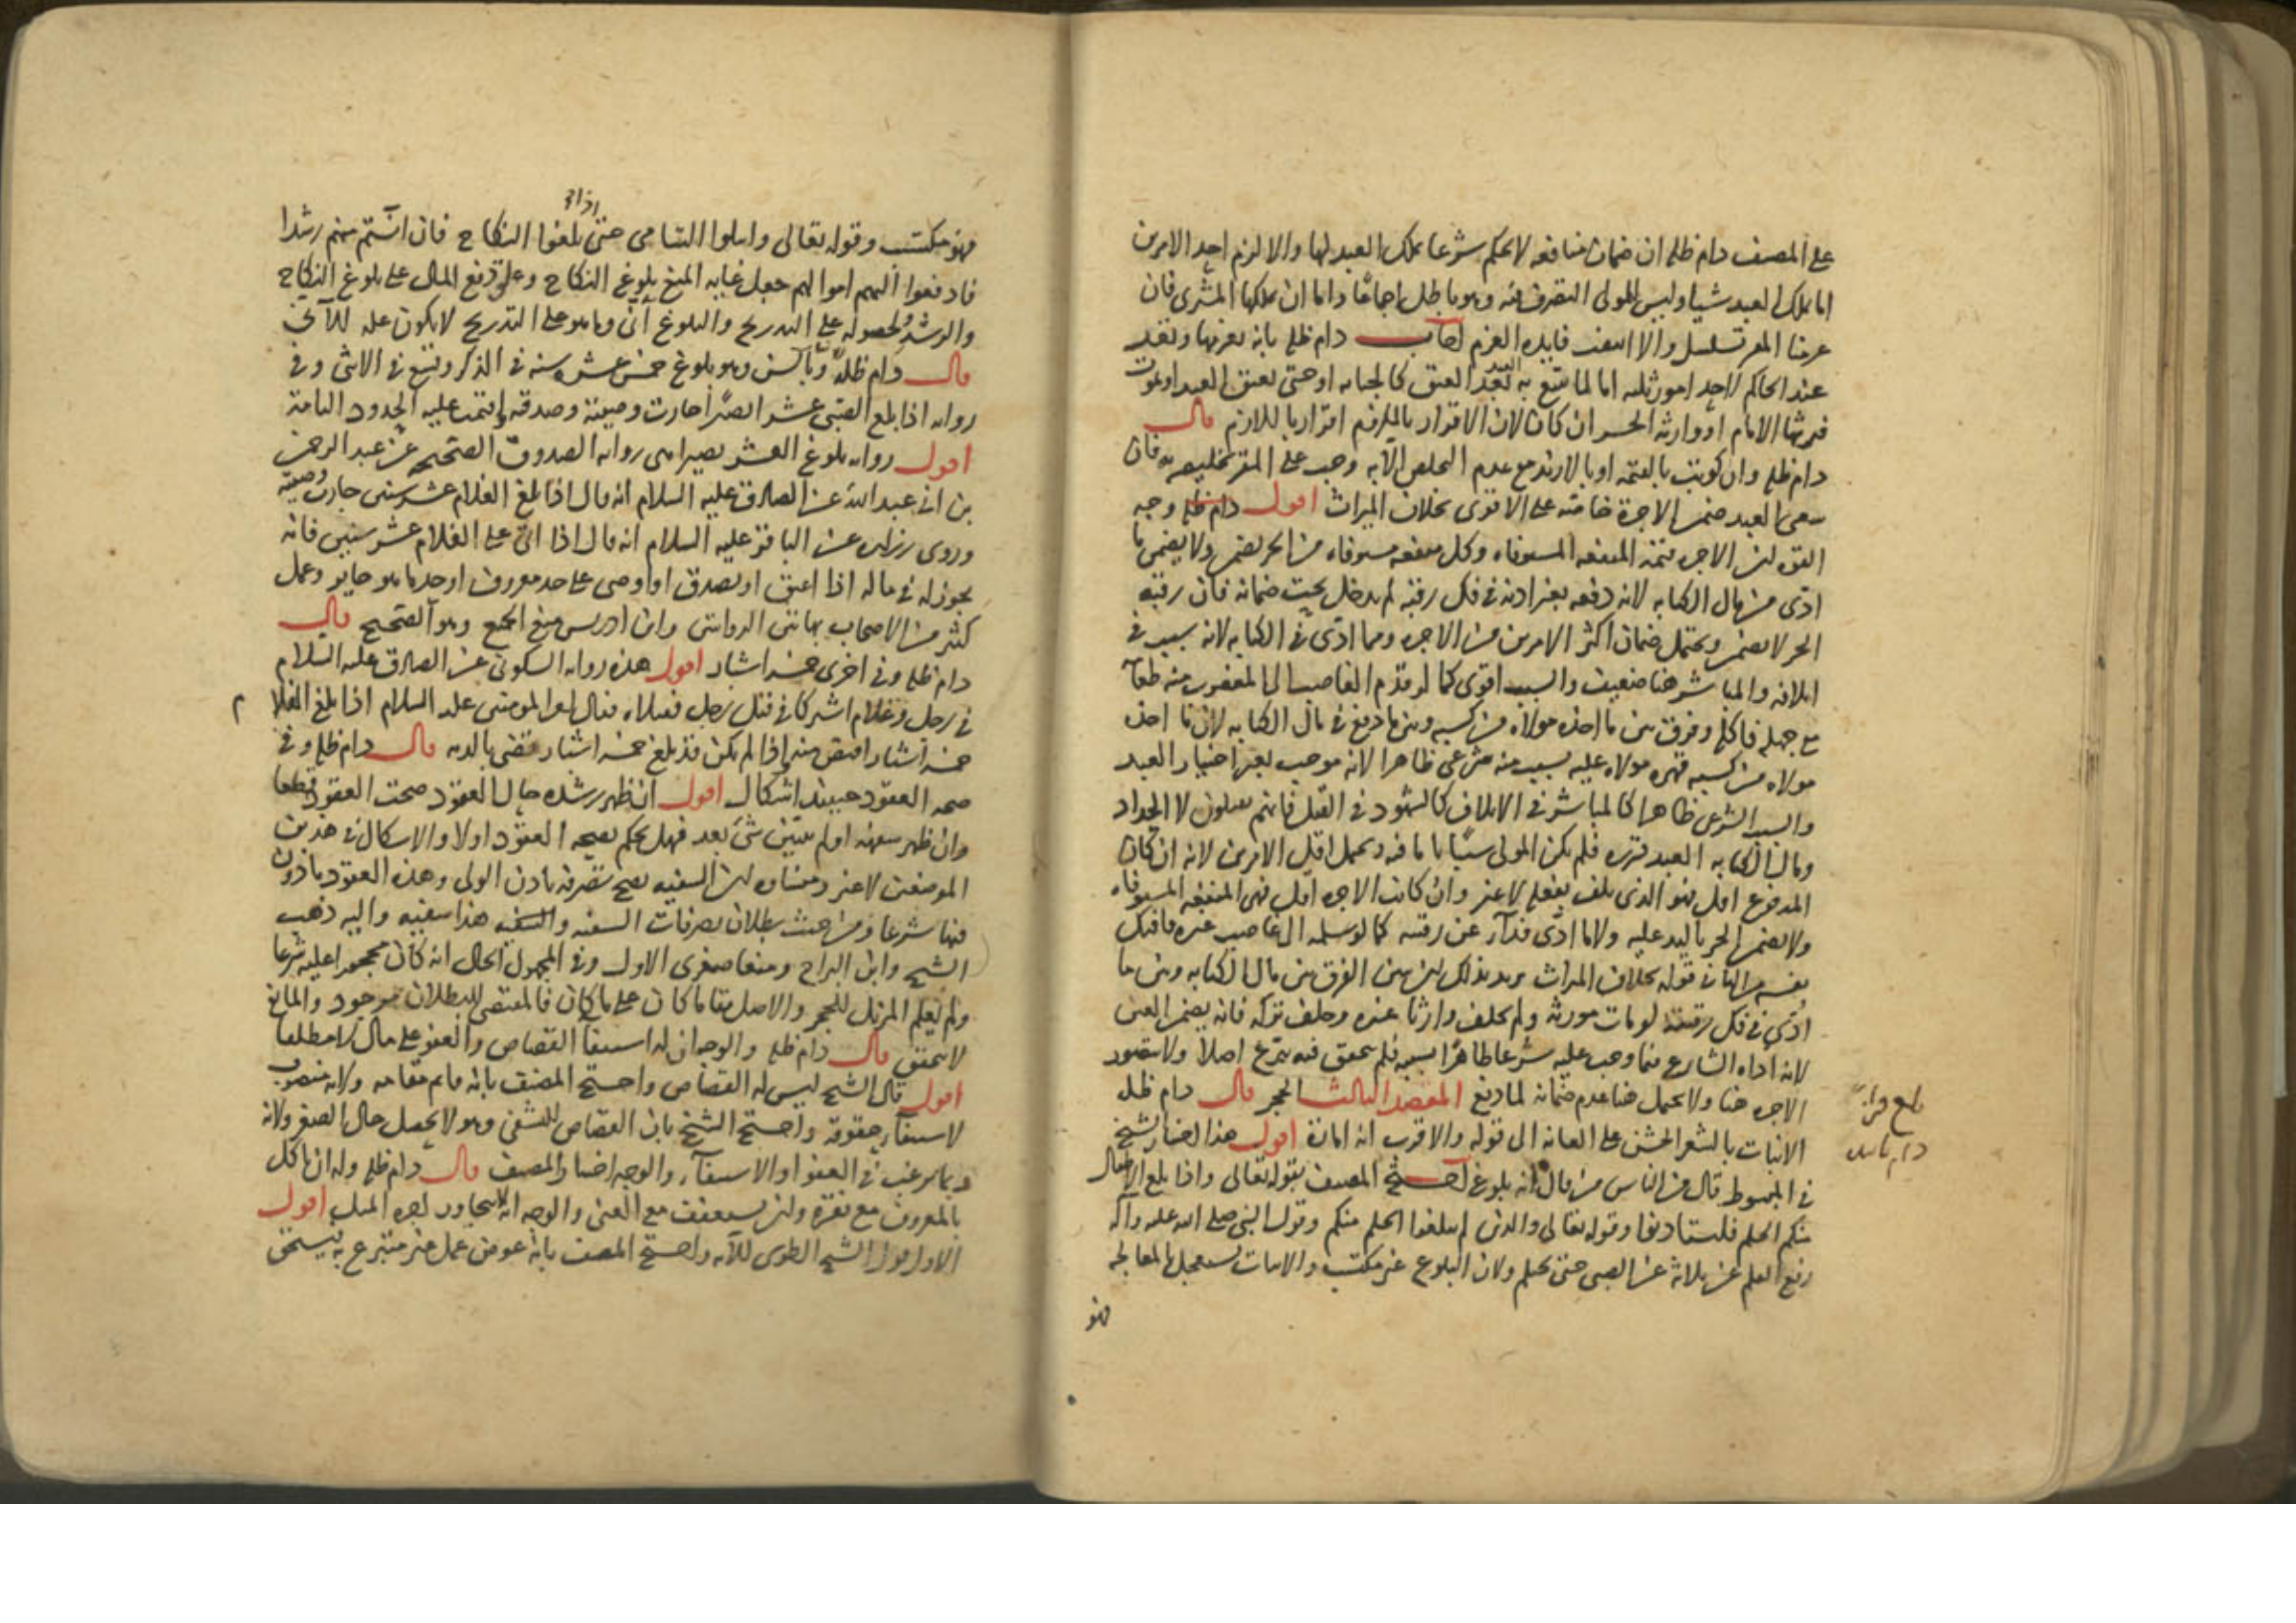 على المصنف دام ظله ان ضمان منافعه لا يحكم شرعا بملك العبد لها والا لزم احد الامرين
اما ملك العبد شيا وليس للمولى التصرف فيه وهو باطل اجماعا واما ان يملكها المشترى فان
غرمنا المقر تسلسل والا انتفت فايدة الغرم اجاب دام ظله بانه يغرمها وتقر
عند الحاكم لاحد امور ثلثه اما لما يتبع به بعد العتق كالجنايه او حتى يعتق العبد او يموت
فيرثها الامام او وارثه الحر ان كان لان الاقرار بالملزوم اقرار باللازم قال
دام ظله وان كوتب بالقيمه او بالازيد مع عدم التخلص الا به وجب على المقر تخليصه به فان
سعى العبد ضمن الاجرة خاصة على الاقوى بخلاف الميراث اقول دام ظله وجه
القوه ان الاجره قيمة المنفعه المستوفاه وكل منفعه مستوفاه من الحر تضمن ولا يضمن ما
ادى من مال الكتابه لانه دفعه بغير اذنه في فك رقبة لم يدخل تحت ضمانه فان رقبه
الحر لا تضمن ويحتمل ضمان اكثر الامرين من الاجره ومما ادى في الكتابه لانه سبب في
اتلافه والمباشر هنا ضعيف والسبب اقوى كما لو قدم الغاصب الى المغصوب منه طعامه
مع جهله فاكله وفرق بين ما اخذه مولاه من كسبه وبين ما دفع في مال الكتابه لان ما اخذ
مولاه من كسبه قهره مولاه عليه بسبب منه شرعى ظاهرا لانه موجب بغير اختيار العبد
والسبب الشرعى ظاهرا كالمباشر في الاتلاف كالشهود في القتل فانهم يقتلون لا الحداد
ومال الكتابه العبد قرره فلم يكن المولى سببا تاما فيه ويحتمل اقل الامرين لانه ان كان
المدفوع اقل فهو الذى تلف بفعله لا غير وان كانت الاجره اقل فهى المنفعه المستوفاه
ولا يضمن الحر باليد عليه ولا ما ادى فداء عن رقبته كما لو سلمه الى غاصب غيره فافتك
نفسه من الثانى قوله بخلاف الميراث يريد بذلك ان يبين الفرق بين مال الكتابه وبين ما
ادى في فك رقبته لو مات مورثه ولم يخلف وارثا غيره وخلف تركه فانه يضمن العين
لانه اداه الشارع فيما وجب عليه شرعا ظاهرا بسببه فلم يتحقق فيه تبرع اصلا ولا يتصور
الاجره هنا ولا يحتمل هنا عدم ضمانه لما دفع المقصد الثالث الحجر قال دام ظله
الانبات بالشعر الخشن على العانه الى قوله والاقرب انه امارة اقول هذا اختيار الشيخ
في المبسوط قال من الناس من قال انه بلوغ احتج المصنف بقوله تعالى واذا بلغ الاطفال
منكم الحلم فليستاذنوا وقوله تعالى والذين لم يبلغوا الحلم منكم وقول النبى صلى الله عليه وآله
رفع القلم عن ثلاثة عن الصبى حتى يحتلم ولان البلوغ غير مكتسب والانبات يستعجل بالمعالجه
فهو
بلغ قراة
دام تاييده
اذا
فهو مكتسب وقوله تعالى وابتلوا اليتامى حتى بلغوا النكاح فان آنستم منهم رشدا
فادفعوا اليهم اموالهم جعل غايه المنع بلوغ النكاح وعلق دفع المال على بلوغ النكاح
والرشد ولحصوله على التدريج والبلوغ آنى وما هو على التدريج لا يكون علة للآنى
قال دام ظله وبالسن وهو بلوغ خمس عشره سنه في الذكر وتسع في الانثى وفى
روايه اذا بلغ الصبى عشرا بصيرا جازت وصيته وصدقته واقيمت عليه الحدود التامة
اقول روايه بلوغ العشر بصيرا هى روايه الصدوق الصحيحه عن عبد الرحمن
بن ابى عبد الله عن الصادق عليه السلام انه قال اذا بلغ الغلام عشر سنين جازت وصيته
وروى زراره عن الباقر عليه السلام انه قال اذا اتى على الغلام عشر سنين فانه
يجوز له في ماله اذا اعتق او تصدق او اوصى على حد معروف او حد ما هو جايز وعمل
كثير من الاصحاب بهاتين الروايتين وابن ادريس منع الجميع وهو الصحيح قال
دام ظله وفي اخرى خمسه اشبار اقول هذه روايه السكونى عن الصادق عليه السلام
في رجل وغلام اشتركا في قتل رجل فقتلاه فقال امير المومنين عليه السلام اذا بلغ الغلام
خمسه اشبار اقتص منه واذا لم يكن قد بلغ خمسه اشبار قضى بالديه قال دام ظله وفى
صحه العقود حينئذ اشكال اقول ان ظهر رشده حال العقود صحت العقود قطعا
وان ظهر سفهه او لم يتبين شئ بعد فهل يحكم بصحه العقود اولا والاشكال في هذين
الموضعين لا غير ومنشاوه ان السفيه يصح تصرفه باذن الولى وهذه العقود ماذون
فيها شرعا ومن حيث بطلان تصرفات السفيه والسفيه هذا سفيه واليه ذهب
الشيخ وابن البراج ومنعا صغرى الاول وفى المجهول الحال انه كان محجورا عليه شرعا
ولم يعلم المزيل للحجر والاصل بقا ما كان على ما كان فالمقتضى للبطلان موجود والمانع
لا يتحقق قال دام ظله والوجه ان له استيفا القصاص والعفو على مال لا مطلقا
اقول قال الشيخ ليس له القصاص واحتج المصنف بانه قايم مقامه ولانه منصوب
لاستيفاء حقوقه واحتج الشيخ بان القصاص للتشفى وهو لا يحصل حال الصغر ولانه
ربما يرغب في العفو او الاستيفاء والوجه اختيار المصنف قال دام ظله وله ان ياكل
بالمعروف مع فقره وان يستعفف مع الغنى والوجه انه لا يتجاوز اجره المثل اقول
الاول قول الشيخ الطوسى للآيه واحتج المصنف بانه عوض عمل غير متبرع به فيستحق